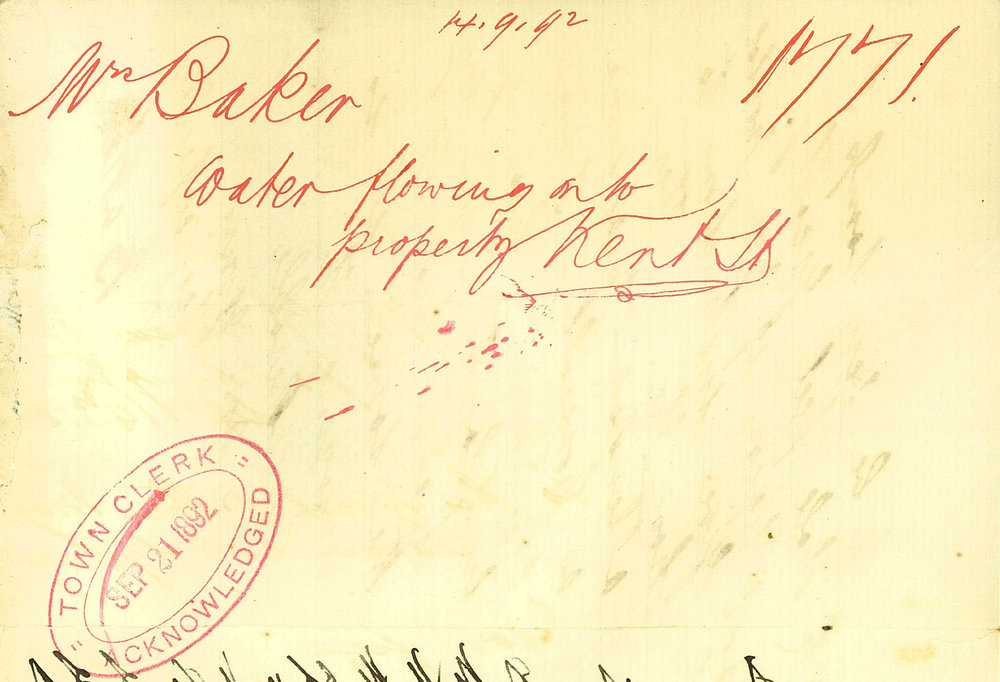 14.9.92
Mrs Baker 1771.
Water flowing on to
property Kent St
TOWN CLERK
SEP 21 1892
ACKNOWLEDGED